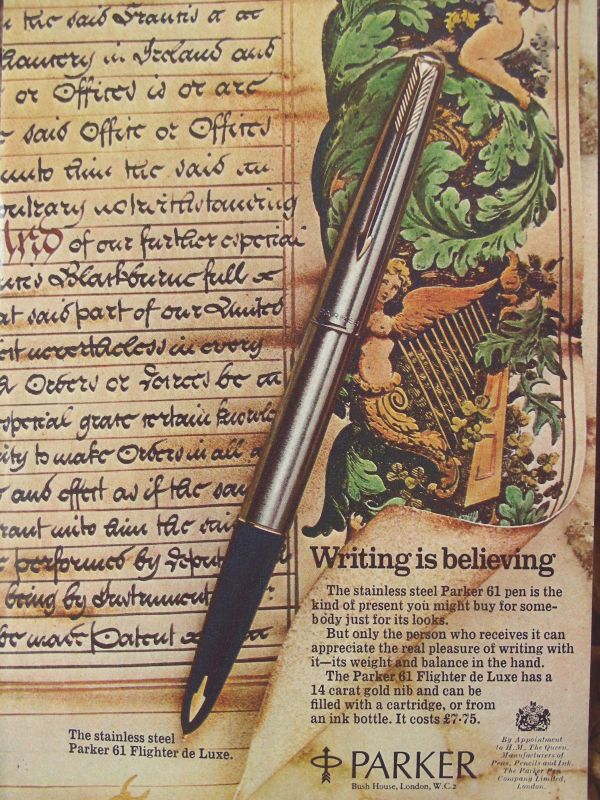 the said Grants or
Chancery in Ireland and
or Offices is or are
said Office or Offices
unto him the said
notwithstanding
And of our further especial
Blackburne full
said part of our United
nevertheless in every
Orders or Decrees be
special grace certain knowle
ity to make Orders in all
and effect as if the said
rant unto him the said
performed by Deput
being by Instrument
be made Patent
PARKER
Writing is believing
The stainless steel Parker 61 pen is the
kind of present you might buy for some-
body just for its looks.
But only the person who receives it can
appreciate the real pleasure of writing with
it—its weight and balance in the hand.
The Parker 61 Flighter de Luxe has a
14 carat gold nib and can be
filled with a cartridge, or from
an ink bottle. It costs £7·75.
The stainless steel
Parker 61 Flighter de Luxe.
PARKER
Bush House, London, W.C.2
By Appointment
to H.M. The Queen,
Manufacturers of
Pens, Pencils and Ink.
The Parker Pen
Company Limited,
London.